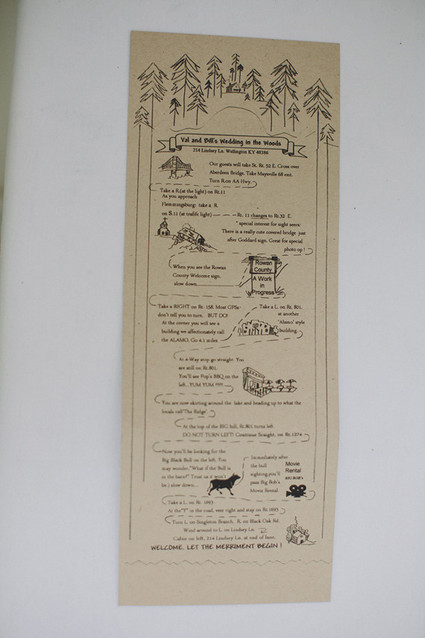 Val and Bill's Wedding in the Woods
214 Lindsey Ln. Wellington KY 40386
Our guests will take St. Rt. 52 E. Cross over
Aberdeen Bridge. Take Maysville 68 exit.
Turn R on AA Hwy.
Take a R.(at the light) on Rt.11
As you approach
Flemmingsburg take a R.
on S.11 (at traffic light) — — — Rt. 11 changes to Rt.32 E.
* special interest for sight seers:
There is a really cute covered bridge just
after Goddard sign. Great for special
photo op!
When you see the Rowan
County Welcome sign,
slow down
Rowan
County
A Work
in
Progress
Take a RIGHT on Rt. 158. Most GPSs
don't tell you to turn. BUT DO!
At the corner you will see a
building we affectionately call
the ALAMO. Go 4.1 miles
Take a L. on Rt. 801.
at another
"Alamo" style
building.
At 4-Way stop go straight. You
are still on Rt.801.
You'll see Pop's BBQ on the
left. YUM YUM
You are now skirting around the lake and heading up to what the
locals call "The Ridge".
At the top of the BIG hill, Rt.801 turns left.
DO NOT TURN LEFT! Continue Straight, on Rt. 1274.
Now you'll be looking for the
Big Black Bull on the left. You
may wonder, "What if the Bull is
in the barn?" Trust us it won't
be.) slow down...
Immediately after
the bull
sighting you'll
pass Big Bob's
Movie Rental.
Movie
Rental
Take a L. on Rt. 1693
At the "Y" in the road, veer right and stay on Rt.1693
Turn L. on Singleton Branch. R. on Black Oak Rd.
Wind around to L. on Lindsey Ln.
Cabin on left, 214 Lindsey Ln. at end of lane.
WELCOME, LET THE MERRIMENT BEGIN !